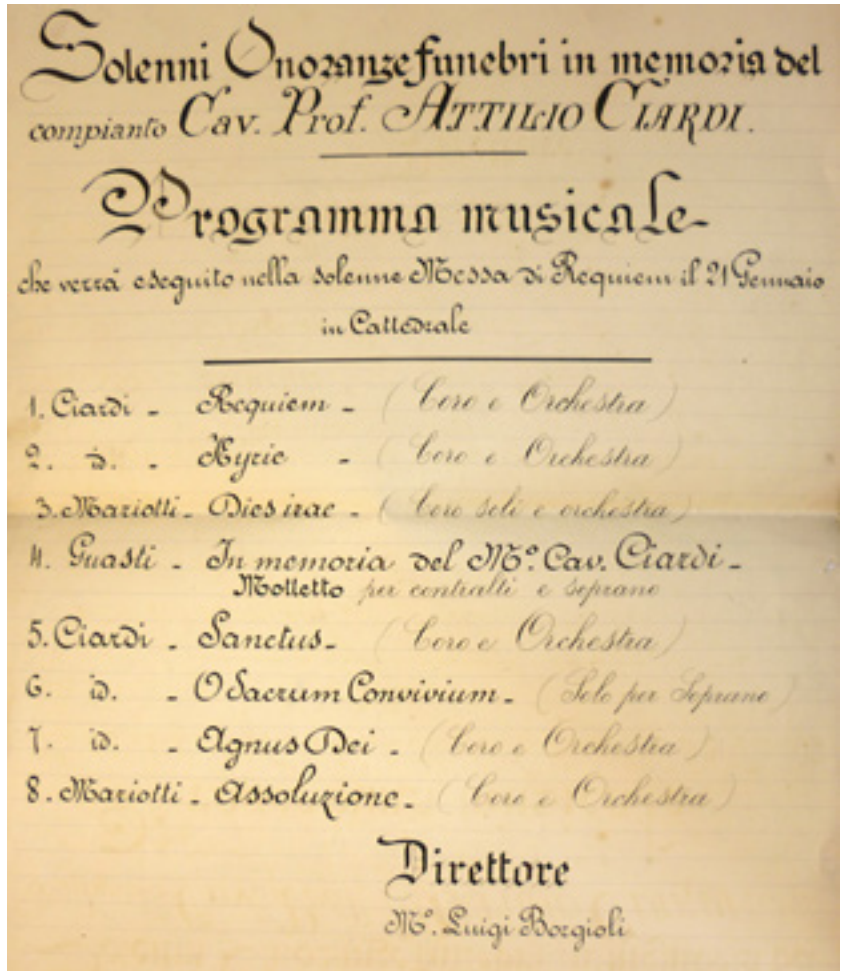 Solenni Onoranze funebri in memoria del
compianto Cav. Prof. ATTILIO CIARDI.
Programma musicale
che verrà eseguito nella solenne Messa di Requiem il 21 Gennaio
in Cattedrale
1. Ciardi - Requiem - (Coro e Orchestra)
2. id. - Kyrie - (Coro e Orchestra)
3. Mariotti - Dies irae - (Coro soli e orchestra)
4. Guasti - In memoria del Mº. Cav. Ciardi -
Mottetto per contralti e soprano
5. Ciardi - Sanctus - (Coro e Orchestra)
6. id. - O Sacrum Convivium - (Solo per Soprano)
7. id. - Agnus Dei - (Coro e Orchestra)
8. Mariotti - Assoluzione - (Coro e Orchestra)
Direttore
Mº. Luigi Borgioli